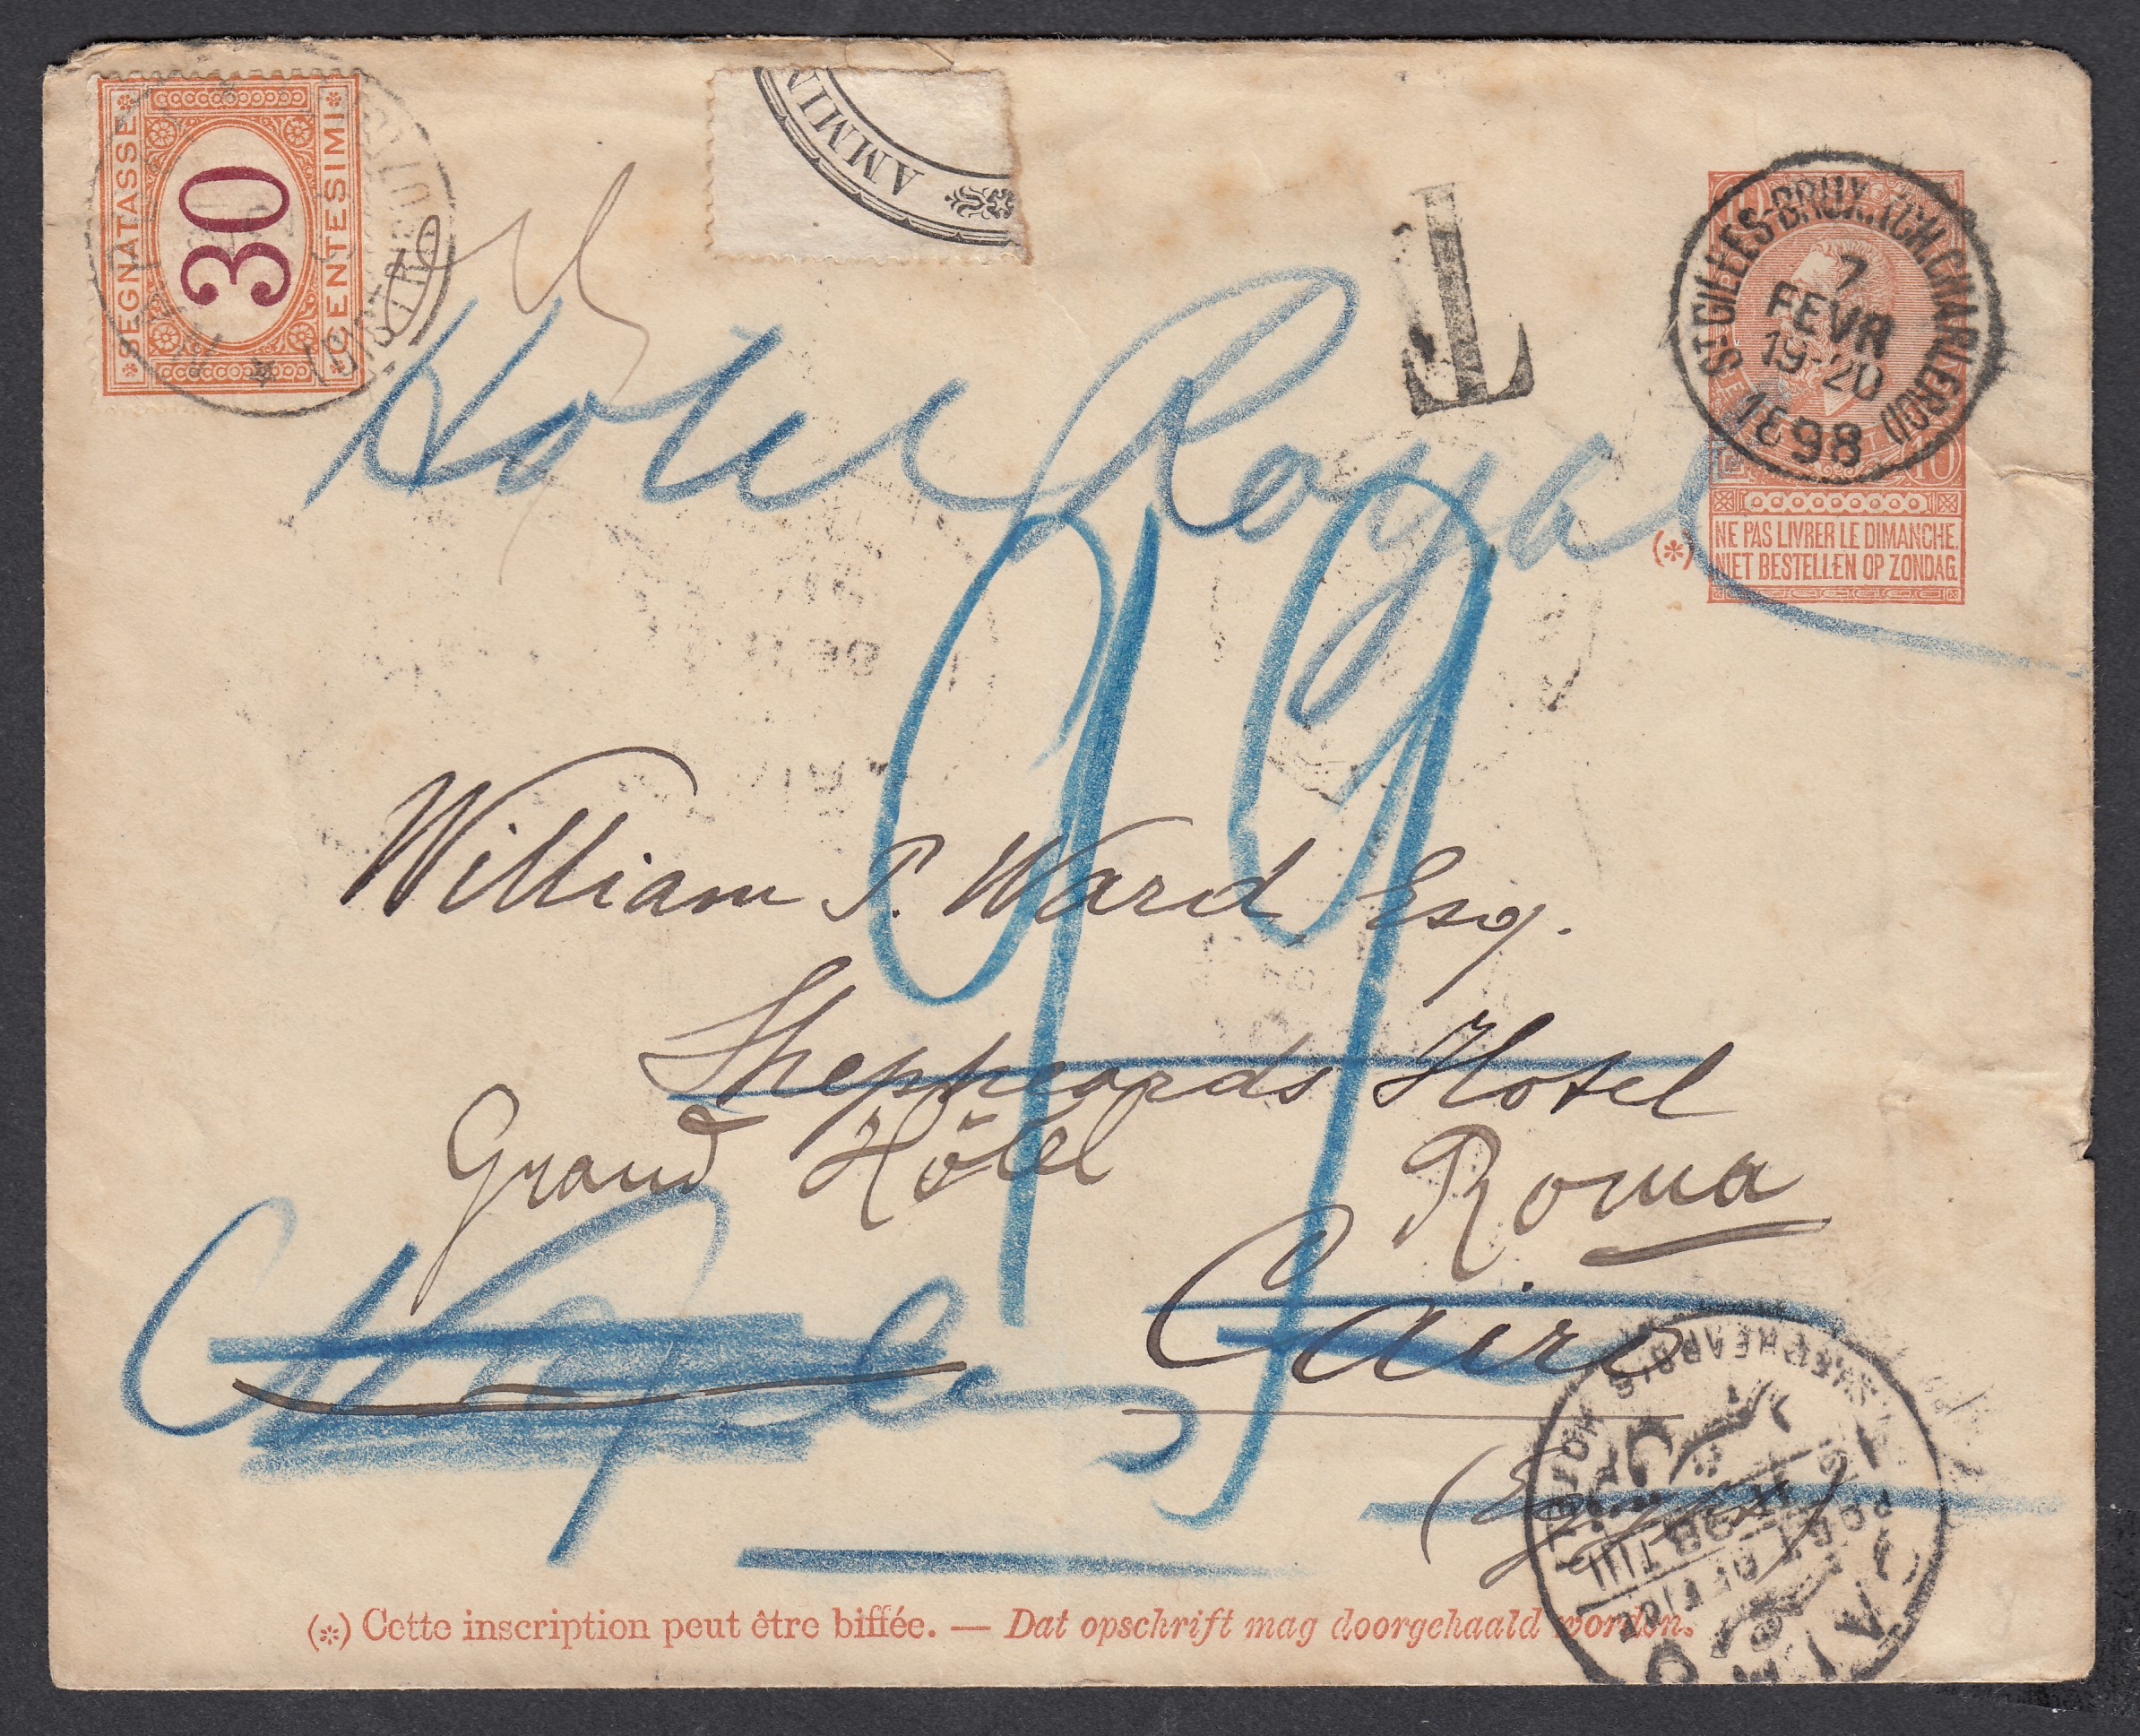 SEGNATASSE
30
CENTESIMI
AMMIN
T
ST-GILLES-BRUX. (CH. CHARLEROI)
7
FEVR
19-20
1898
10
(*) NE PAS LIVRER LE DIMANCHE.
NIET BESTELLEN OP ZONDAG.
Hotel Royal
William P. Ward, Esq.
Shepheards Hotel
Grand Hôtel Roma
Naples
Cairo
(Egypt)
SHEPHEARD'S HOTEL
POST OFFICE
CAIRO
(*) Cette inscription peut être biffée. — Dat opschrift mag doorgehaald worden.